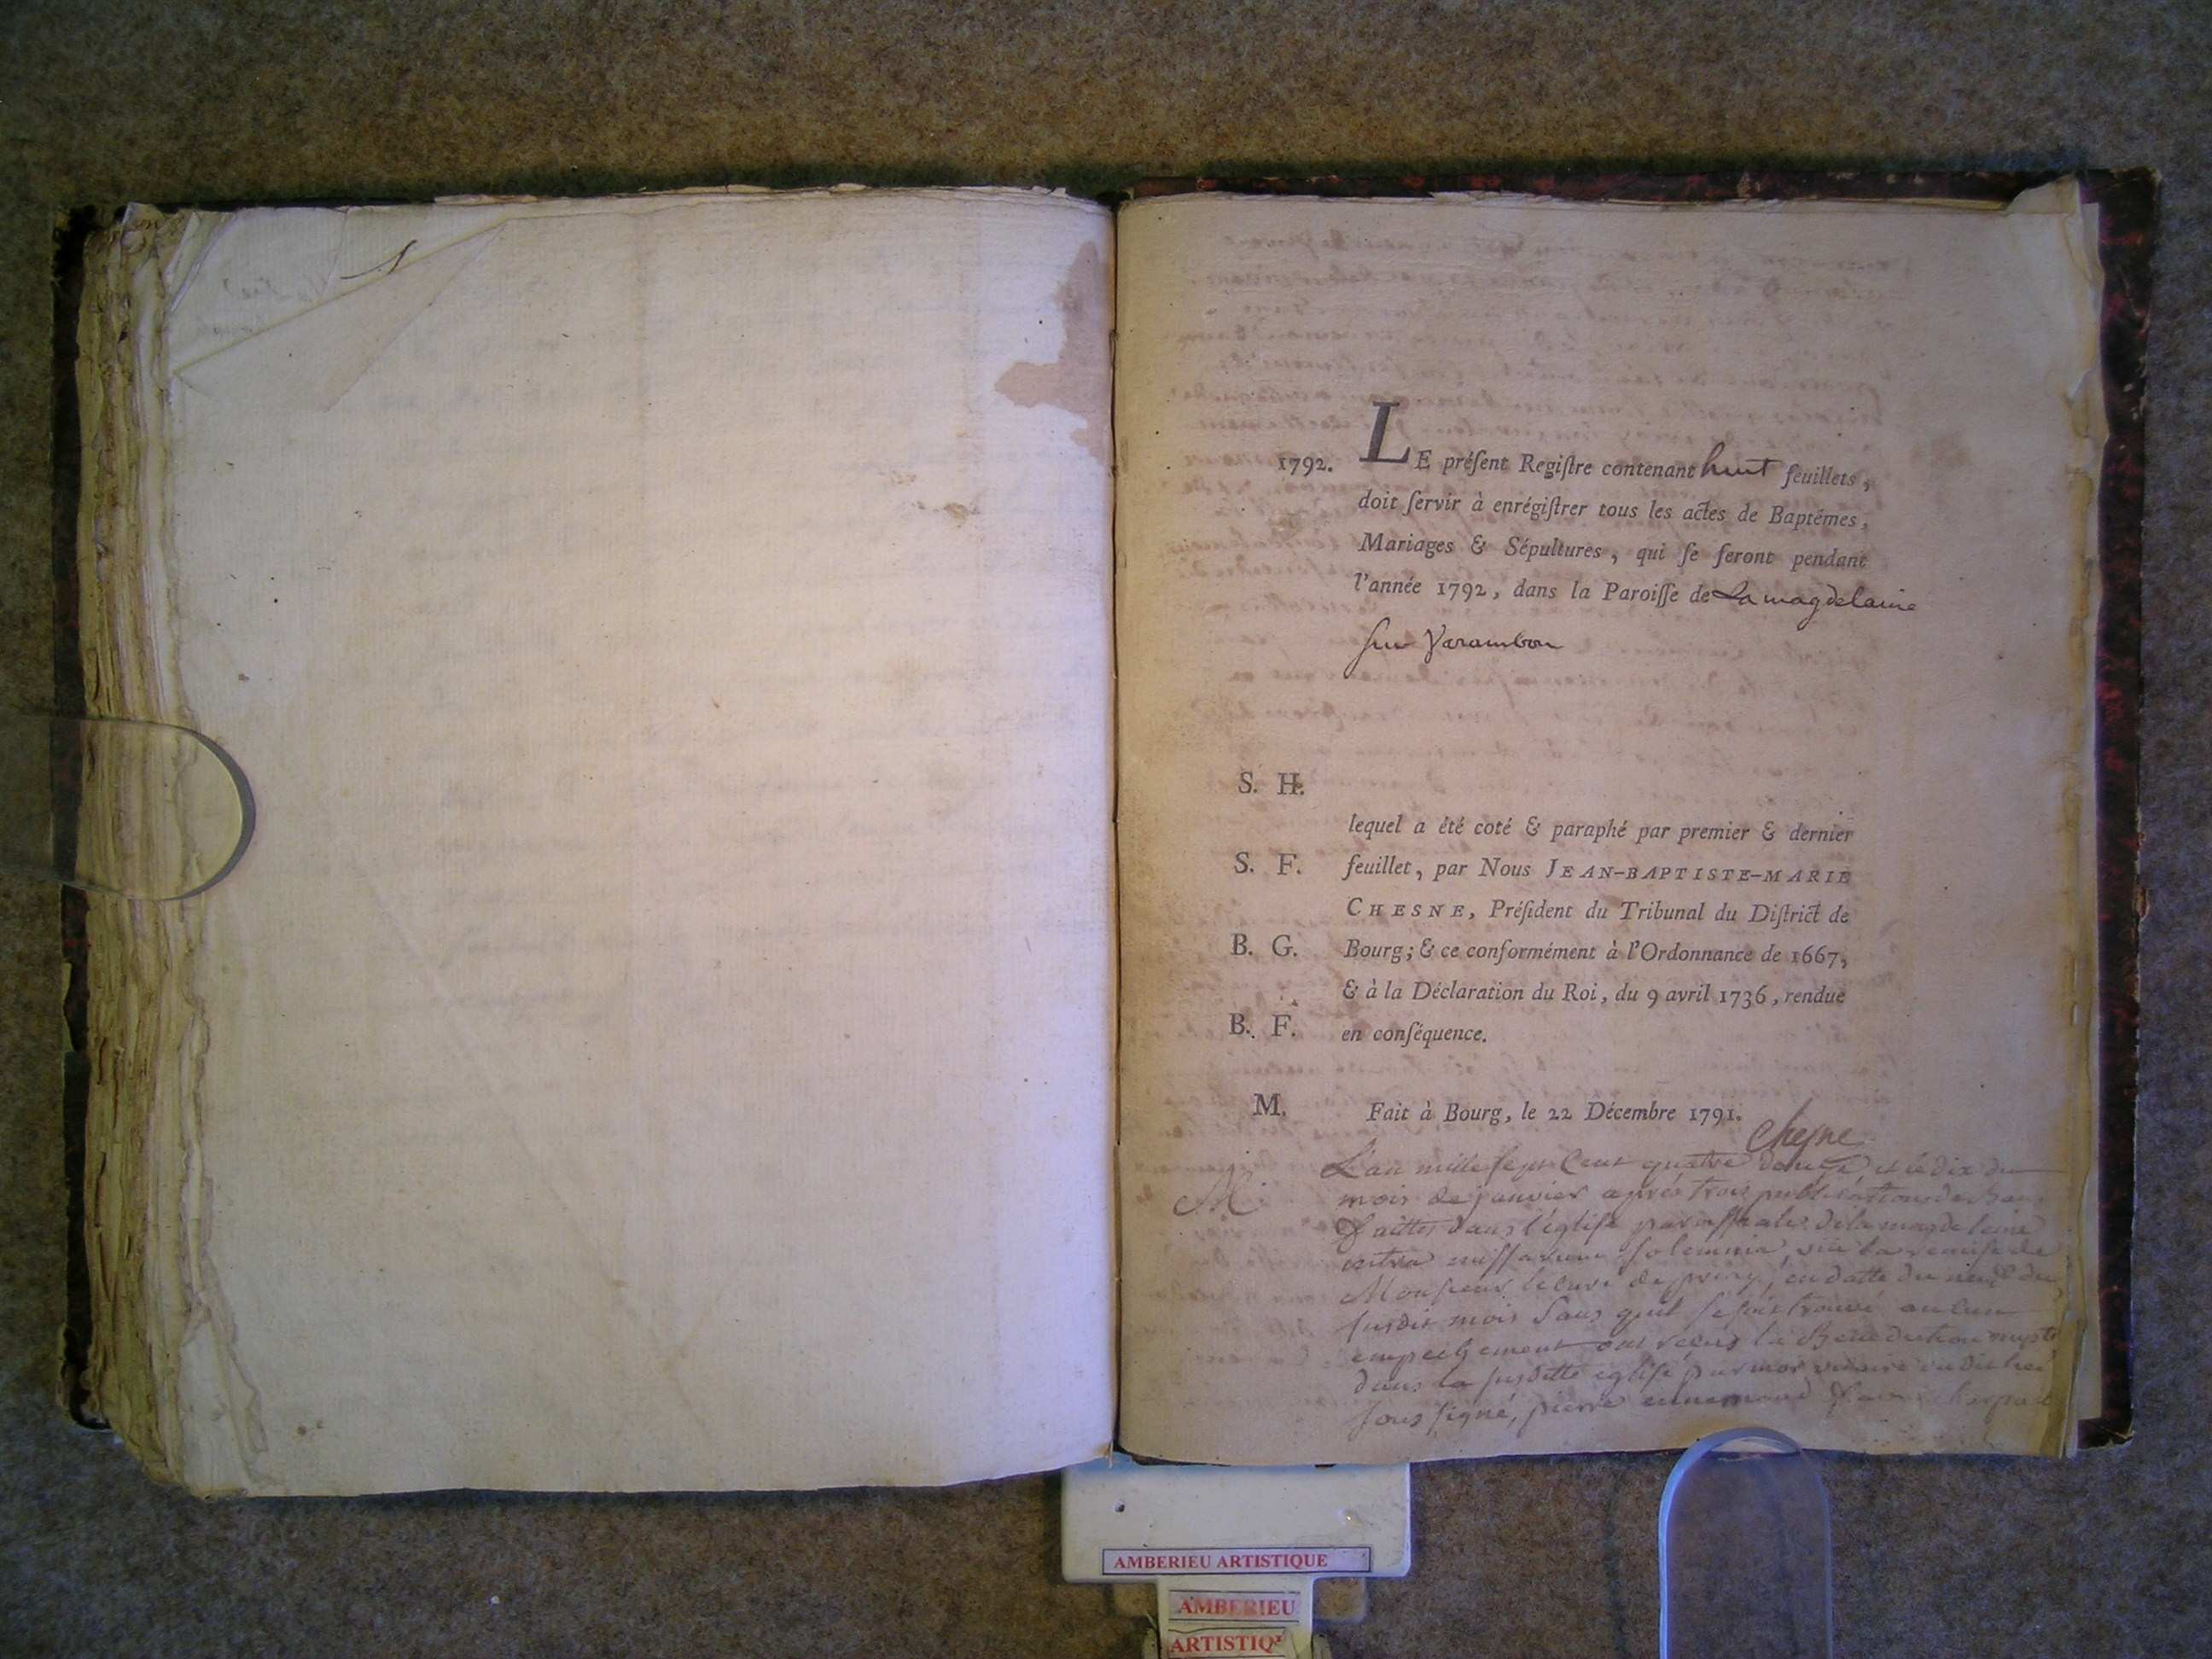 1792. LE préſent Regiſtre contenant huit feuillets,
doit ſervir à enrégiſtrer tous les actes de Baptêmes,
Mariages & Sépultures, qui ſe ſeront pendant
l'année 1792, dans la Paroiſſe de La magdelaine
sur Varambon
S. H.
lequel a été coté & paraphé par premier & dernier
S. F. feuillet, par Nous JEAN-BAPTISTE-MARIE
CHESNE, Préſident du Tribunal du Diſtrict de
B. G. Bourg; & ce conformément à l'Ordonnance de 1667,
& à la Déclaration du Roi, du 9 avril 1736, rendue
B. F. en conſéquence.
M. Fait à Bourg, le 22 Décembre 1791.
Chesne
L'an mille sept Cent quatre douze et le dix du
M. mois de janvier après trois publications de bans
faittes dans l'église paroissiale de la magdeleine
intra missarum solemnia, vu la remise de
Monsieur le curé de en datte du neuf du
susdit mois sans quil se soit trouvé aucun
empechement ont reçus la Benediction nupt
dans la susditte eglise par moi vicaire du dit lieu
sous signé, pierre ennemond
AMBERIEU ARTISTIQUE
AMBERIEU
ARTISTIQ